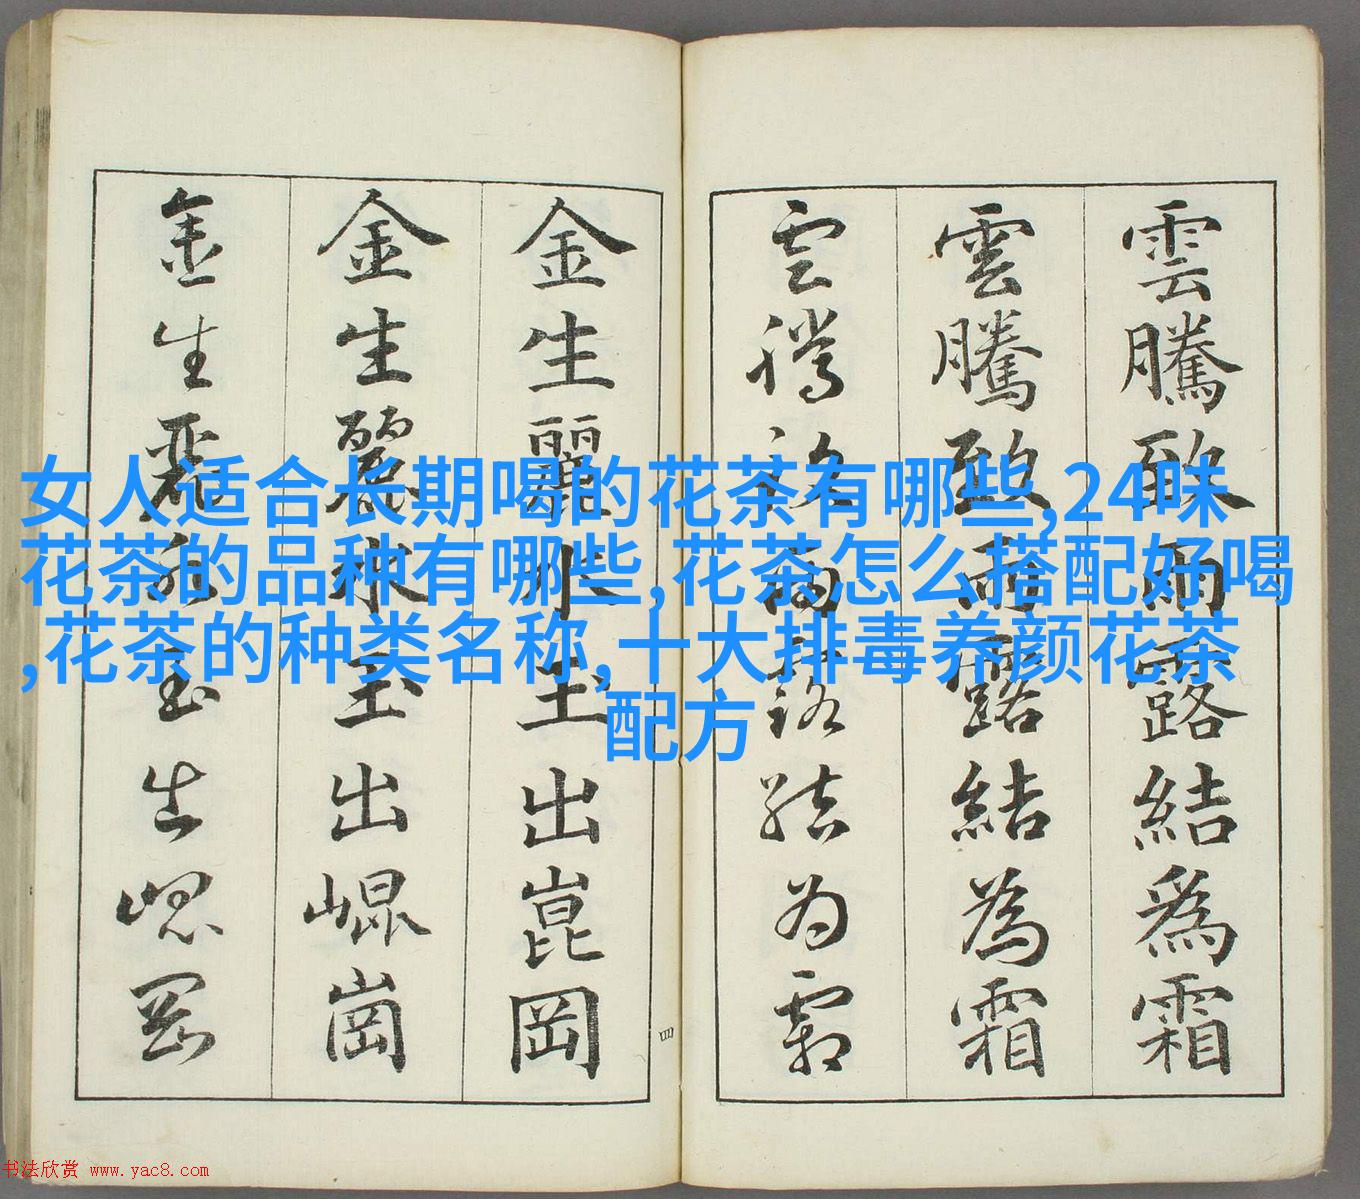 女人适合长期喝的花茶有哪些,24味
花茶的品种有哪些,花茶怎么搭配好喝
,花茶的种类名称,十大排毒养颜花茶
配方
雲騰致雨露結爲霜
雲騰致雨露結為霜
雲騰致雨露结为霜
四
金生麗水玉出崑岡
金生麗水玉出崐崗
金生麗水玉出崐岡
书法欣赏 www.yac8.com